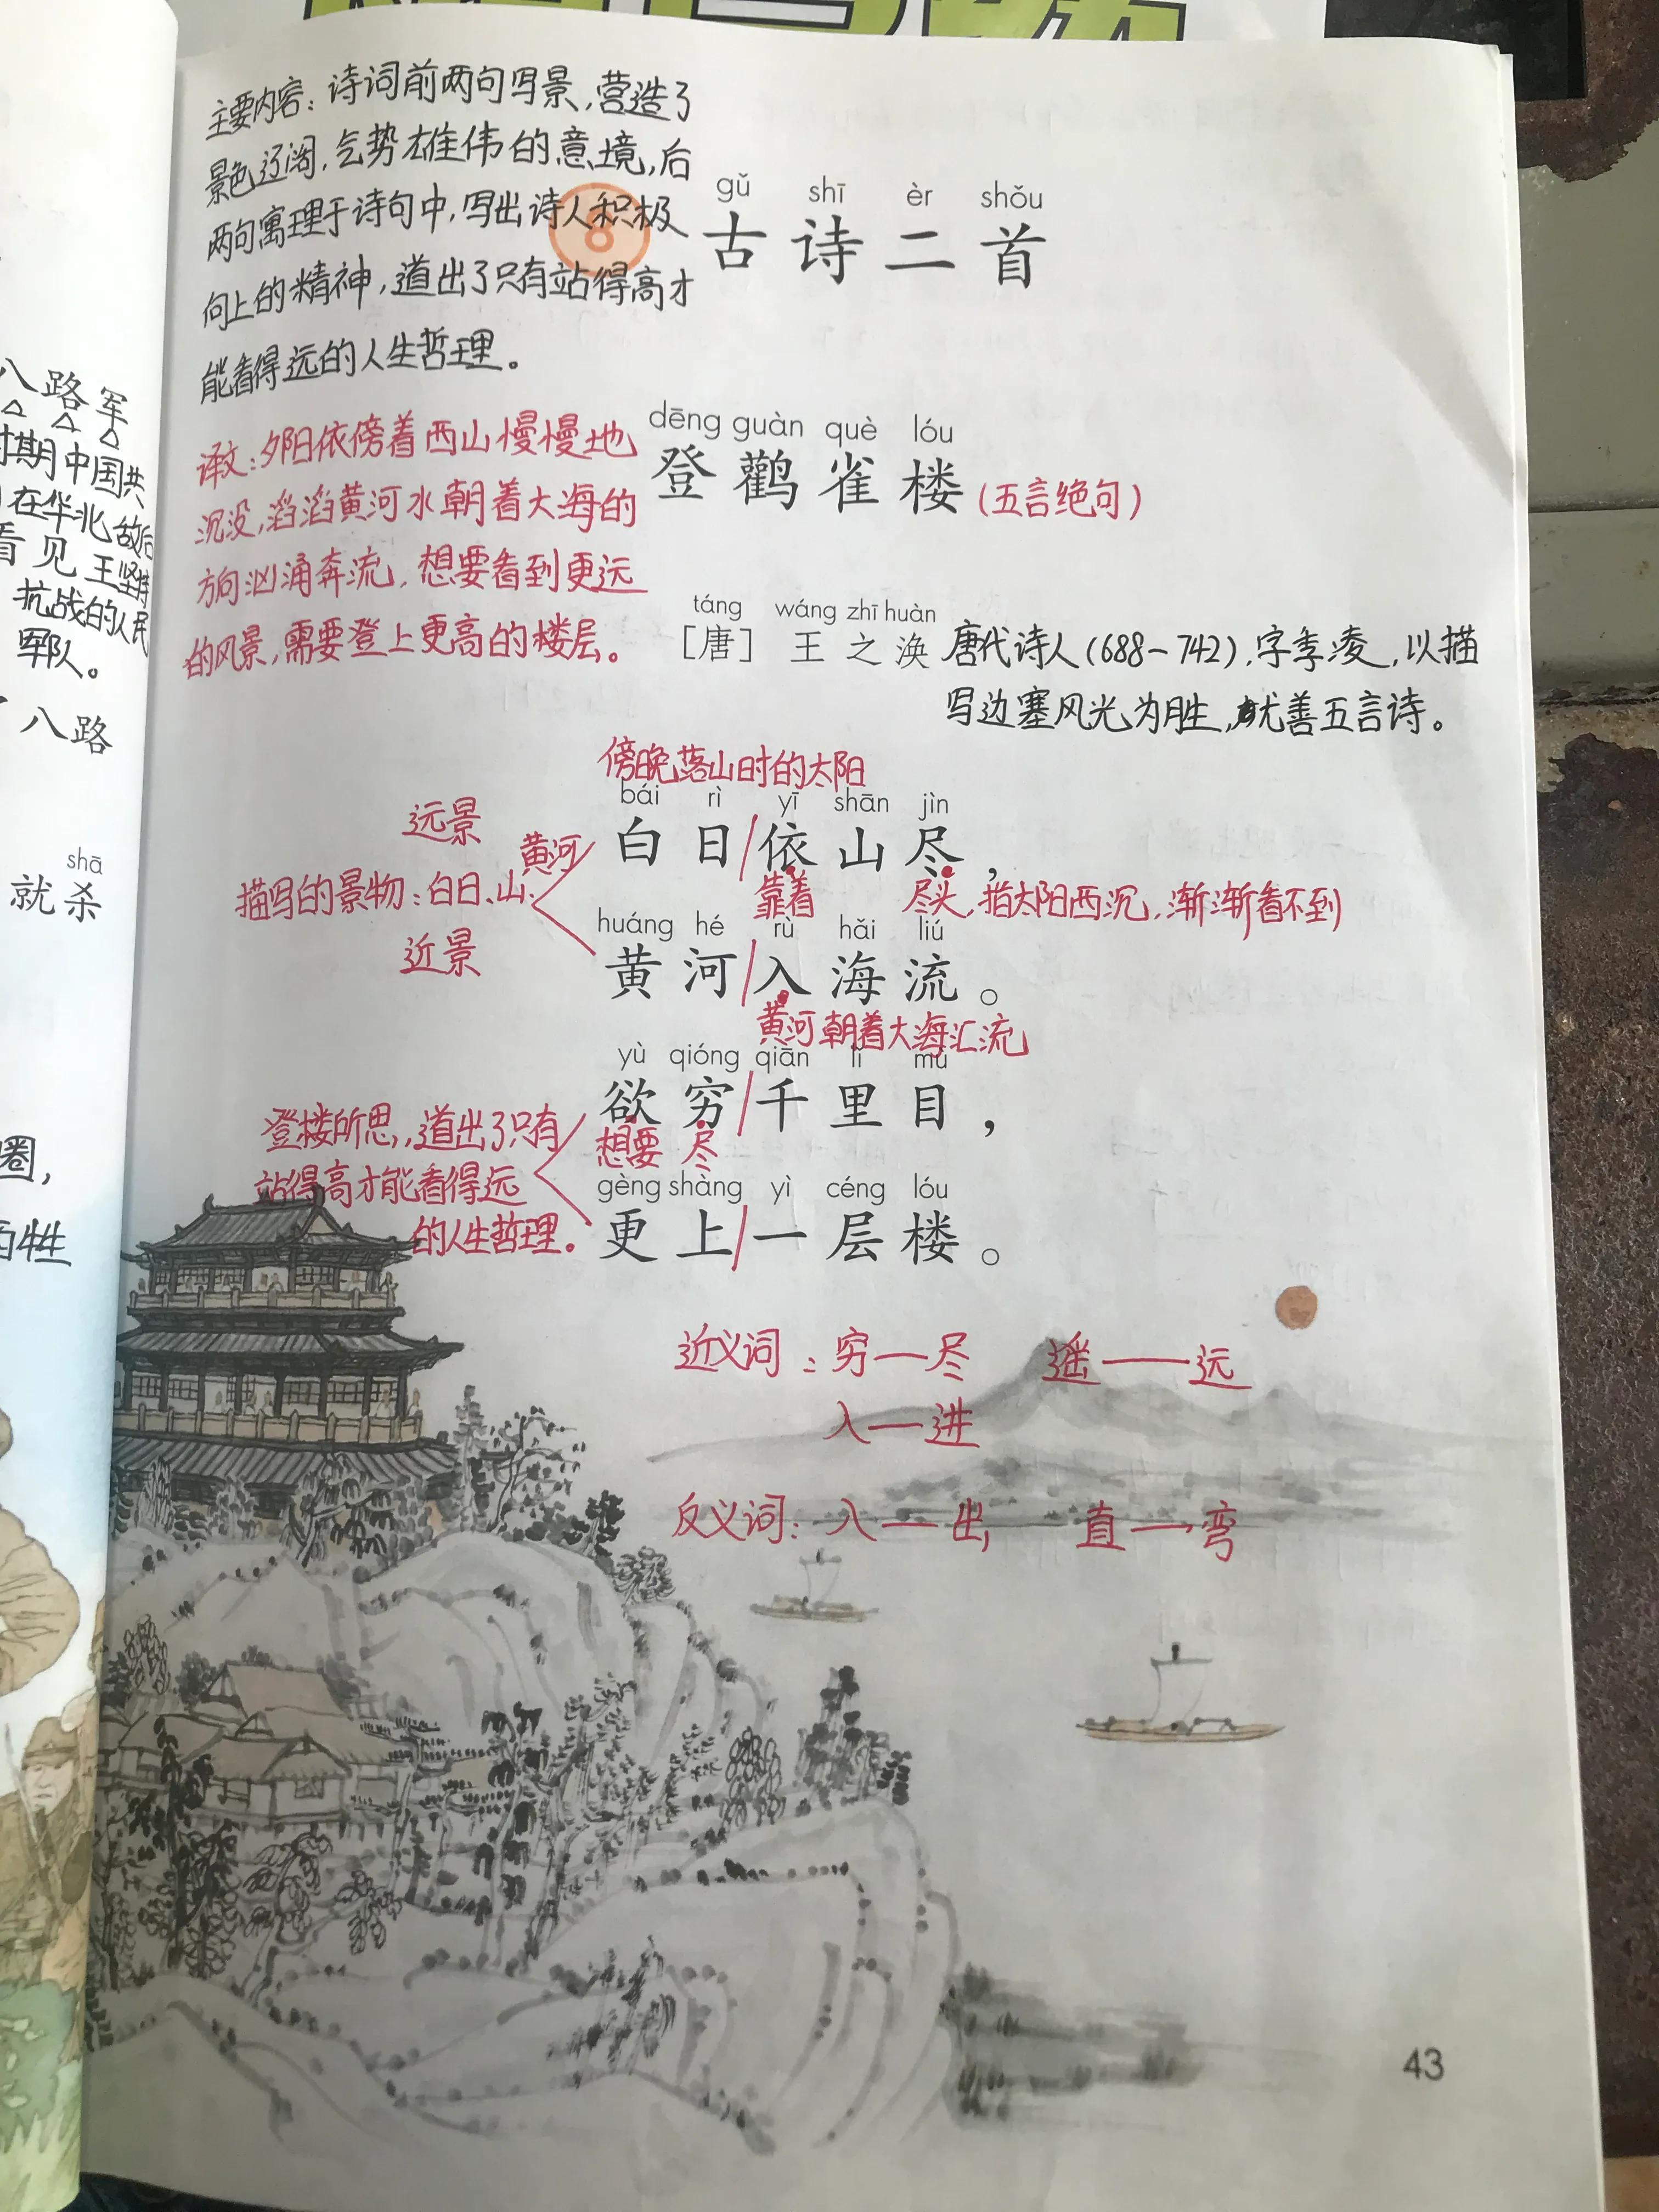 主要内容：诗词前两句写景，营造了
景色辽阔，气势雄伟的意境，后
两句寓理于诗句中，写出诗人积极
向上的精神，道出了只有站得高才
能看得远的人生哲理。
8
gǔ shī èr shǒu
古诗二首
译文：夕阳依傍着西山慢慢地
沉没，滔滔黄河水朝着大海的
方向汹涌奔流，想要看到更远
的风景，需要登上更高的楼层。
dēng guàn què lóu
登鹳雀楼（五言绝句）
táng wáng zhī huàn
［唐］王之涣 唐代诗人（688-742），字季凌，以描
写边塞风光为胜，尤善五言诗。
傍晚落山时的太阳
bái rì yī shān jìn
白日/依山尽，
靠着 尽头，指太阳西沉，渐渐看不到
远景
黄河
描写的景物：白日、山、
近景
huáng hé rù hǎi liú
黄河/入海流。
黄河朝着大海汇流
yù qióng qiān lǐ mù
欲穷/千里目，
想要 尽
登楼所思，道出了只有
站得高才能看得远
的人生哲理。
gèng shàng yì céng lóu
更上/一层楼。
近义词：穷—尽 遥—远
入—进
反义词：入—出 直—弯
43
八路军
时期中国共
在华北敌后
看见王坚持
抗战的人民
军队。
八路
shā
就杀
圈，
牺牲